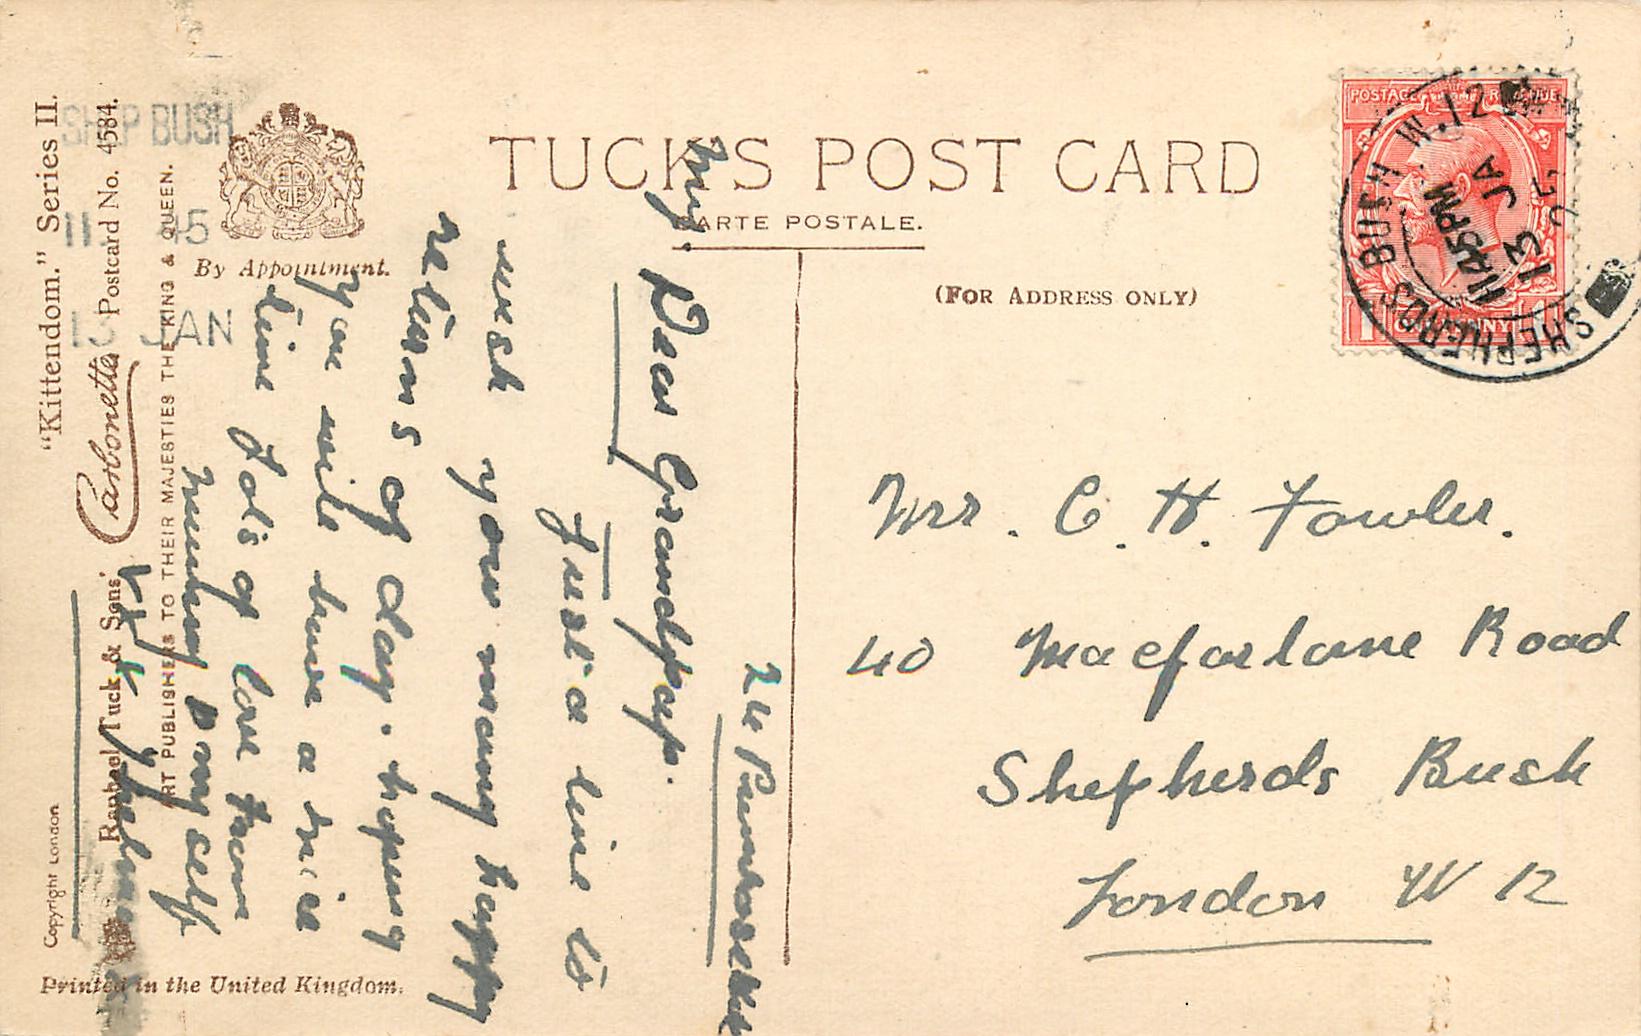 TUCK'S POST CARD
CARTE POSTALE.
(FOR ADDRESS ONLY)
By Appointment.
"Kittendom." Series II.
Carbonette Postcard No. 4584.
Raphael Tuck & Sons'
ART PUBLISHERS TO THEIR MAJESTIES THE KING & QUEEN.
Copyright London
Printed in the United Kingdom.
SHEP BUSH
11. 45
13 JAN
POSTAGE REVENUE
ONE PENNY
SHEPHERDS BUSH W.12
11.45PM
13 JA
24
My. Dear Grandpap.
Just a line to
wish you many happy
returns of day. hopeing
you will have a nice
time Lots of love from
mummy D my self
Mrs. C. H. Fowler.
40 Macfarlane Road
Shepherds Bush
London W 12